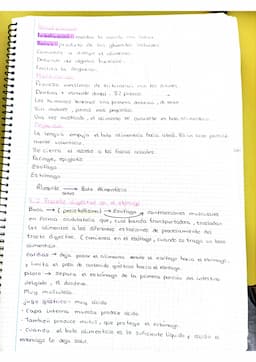 Insalivación: mezcla la comida con saliva.
Saliva: producto de las glándulas salivares
Comienza a digerir el alimento
Detectar
Facilita la deglución.
Masticación
Proceso mecánico de trituración con los dientes.
Dentina + esmalte dental. 32 piezas
Los humanos tenemos una primera dentición, de leche
Una vez masticado, el alimento se convierte en bolo alimenticio.
Deglución
La lengua empuja el bolo alimenticio hacia atrás. Es un acto
Se cierra el acceso a las fosas nasales.
Faringe, epiglotis
Esófago
Estómago
Alimento → Bolo alimenticio
saliva
Proceso digestivo en el estómago
Boca → (peristaltismo) → Esófago, contracciones musculares
en forma ondulatoria que, cual banda transportadora, trasladan
los alimentos a las diferentes estaciones de procesamiento del
tracto digestivo. Comienza en el esófago, cuando se traga un bolo
alimenticio.
Cardias → deja pasar el alimento desde el esófago hacia el estómago,
y limita el paso de contenido gástrico hacia el esófago.
Píloro → separa el estómago de la primera porción del intestino
delgado, el duodeno.
Muy musculoso
Jugo gástrico - muy ácido
- Capa interna mucosa produce ácido
- También produce mucus, que protege el estómago.
- Cuando el bolo alimenticio es lo suficiente líquido y ácido el
estómago lo deja salir.